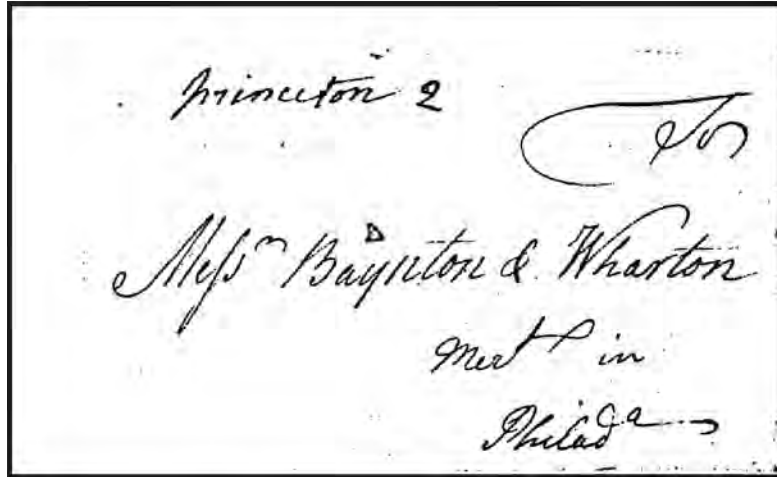 Princeton 2
To
Messrs Baynton & Wharton
Mert in
Philada